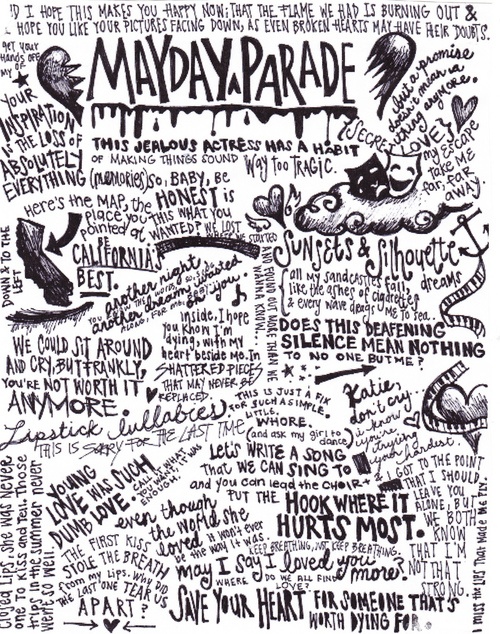 D I HOPE THIS MAKES YOU HAPPY NOW; THAT THE FLAME WE HAD IS BURNING OUT &
I HOPE YOU LIKE YOUR PICTURES FACING DOWN, AS EVEN BROKEN HEARTS MAY HAVE THEIR DOUBTS.
get your
Hands OFF
MY
MAYDAY PARADE
but a promise
doesn't mean a
thing anymore.
YOUR
INSPIRATION
IS THE LOSS OF
ABSOLUTELY
EVERYTHING
THIS JEALOUS ACTRESS HAS A HABIT
OF MAKING THINGS SOUND WAY TOO TRAGIC.
(memories)
SECRET
LOVE?
my escape
TAKE ME
FAR, FAR
AWAY.
SO, BABY, BE
HONEST is
THIS WHAT YOU
WANTED?
Here's the MAP, the
place you
pointed at
DOWN & TO THE
LEFT
BE
CALIFORNIA'S
BEST.
another night
another dream wasted
on you.
SUNSETS & Silhouette
dreams
all my sandcastles fall
like the ashes of cigarettes
& every wave drags me to sea.
DOES THIS DEAFENING
SILENCE MEAN NOTHING
TO NO ONE BUT ME?
inside, I hope
you know I'm
dying, with my
heart beside me. In
SHATTERED PIECES
THAT MAY NEVER BE
REPLACED.
WE COULD SIT AROUND
AND CRY, BUT FRANKLY,
YOU'RE NOT WORTH IT
ANYMORE.
THIS IS JUST A FIX
FOR SUCH A SIMPLE,
LITTLE,
WHORE.
(and ask my girl to
dance)
Katie,
don't cry..
i know
you're
trying
your hardest.
Lipstick lullabies
THIS IS SORRY FOR THE LAST TIME
Let's WRITE A SONG
That WE CAN SING TO
and you can lead the CHOIR
PUT THE HOOK WHERE IT
HURTS MOST.
I GOT TO THE POINT
THAT I SHOULD
LEAVE YOU
ALONE, BUT
WE BOTH
KNOW
THAT I'M
NOT THAT
STRONG.
I miss the LIPS That Made Me Fly.
YOUNG
LOVE WAS SUCH
DUMB LOVE.
CALL IT WHAT
YOU WANT, IT WAS
ENOUGH.
even though
the world she
loved
it won't ever
be the way it was
KEEP BREATHING, JUST KEEP BREATHING.
Closed Lips she was Never
one To Kiss and Tell. Those
Trips in the summer never
went so well.
THE FIRST KISS
STOLE THE BREATH
From my Lips. Why did
THE LAST ONE TEAR US
APART?
may I say I loved you
more?
WHERE DO WE ALL FIND
LOVE?
SAVE YOUR HEART FOR SOMEONE THAT'S
WORTH DYING FOR.